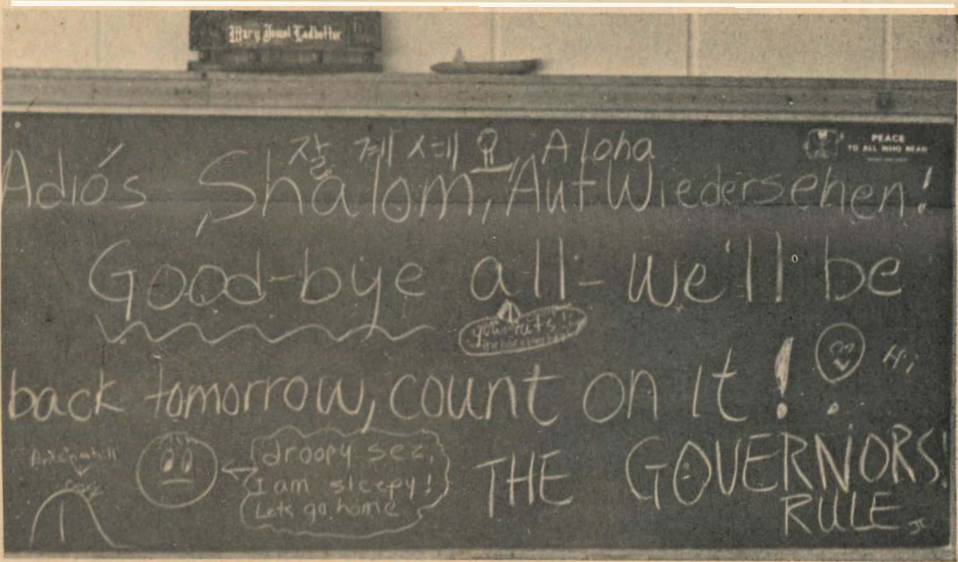 Mary Jewel Ledbetter
PEACE
TO ALL WHO READ
잘 계세요 Aloha
Adiós, Shalom, Auf Wiedersehen!
Good-bye all - we'll be
you rats!
back tomorrow, count on it!
Hi,
droopy sez,
I am sleepy!
Lets go home
THE GOVERNORS!
RULE
JL